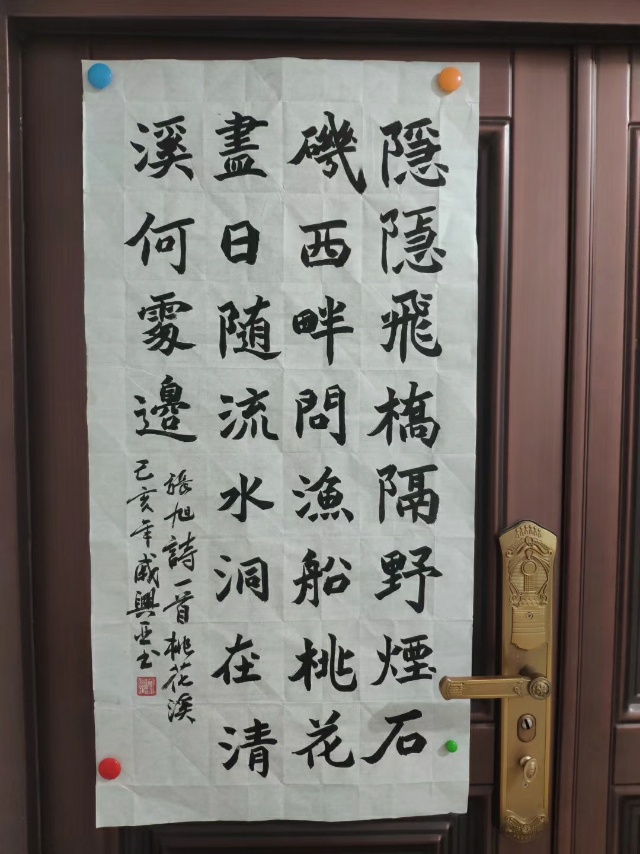 隱隱飛橋隔野煙石
磯西畔問漁船桃花
盡日随流水洞在清
溪何處邊
張旭詩一首桃花溪
己亥年威興亚书